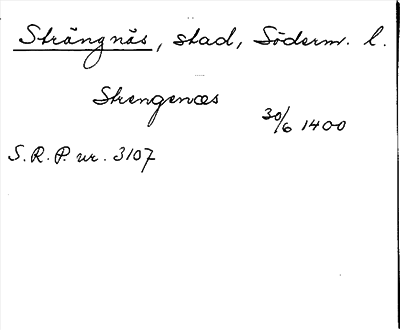 Strängnäs, stad, Söderm. l.
Strengenæs
30/6 1400
S.R.P. nr. 3107